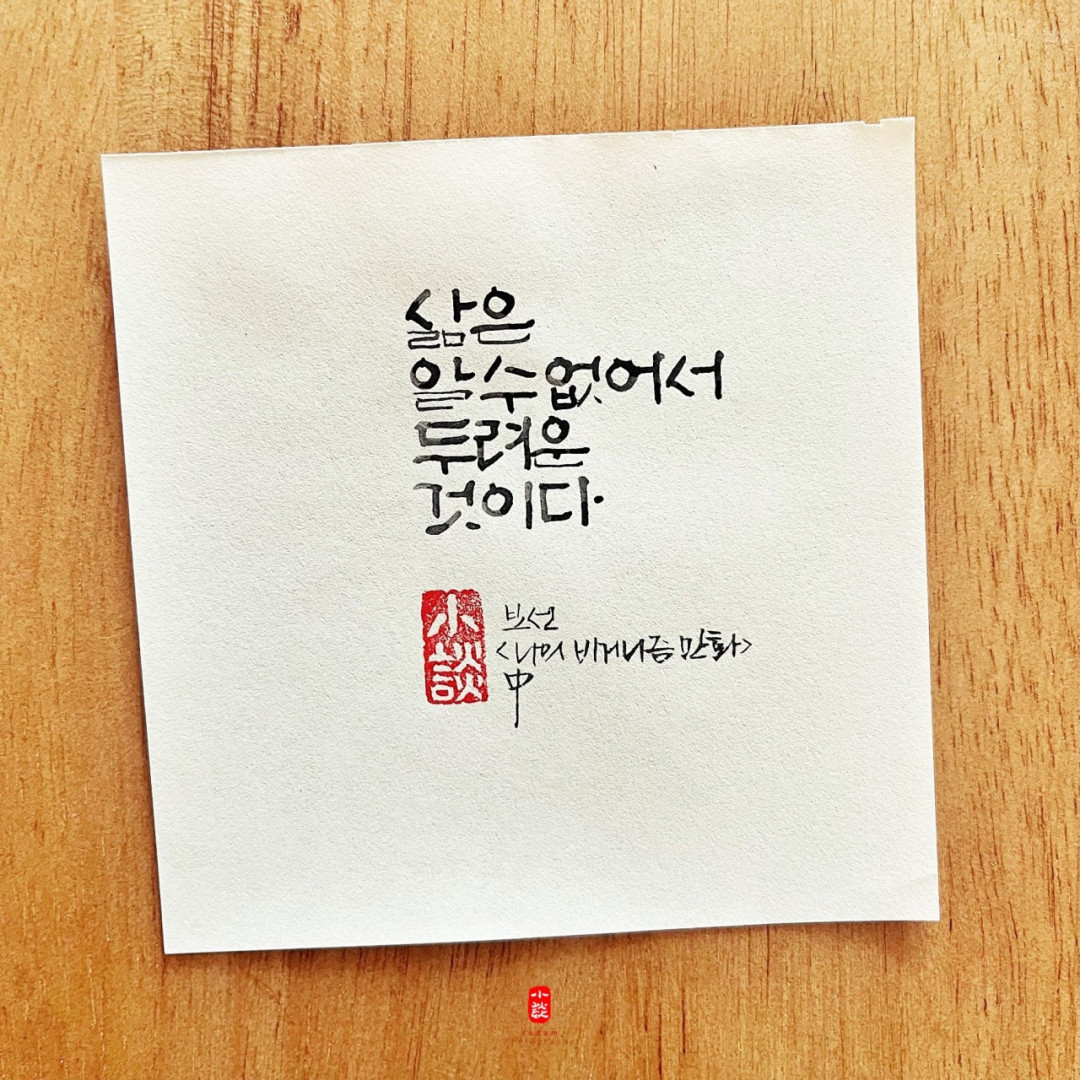 삶은
알 수 없어서
두려운
것이다.
小談
보선
<나의 비거니즘 만화>
中
小談